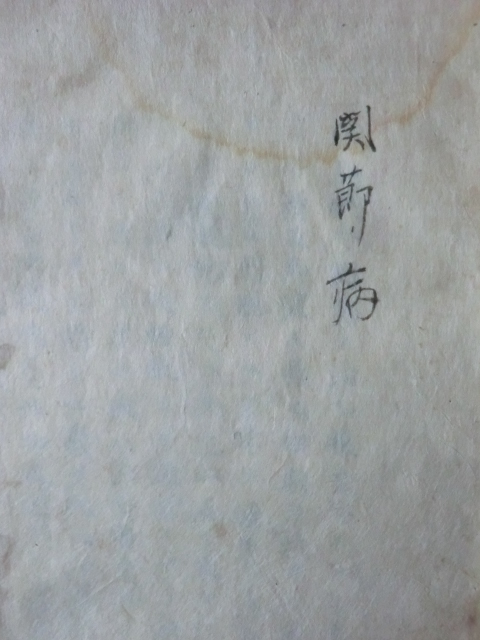 関節病